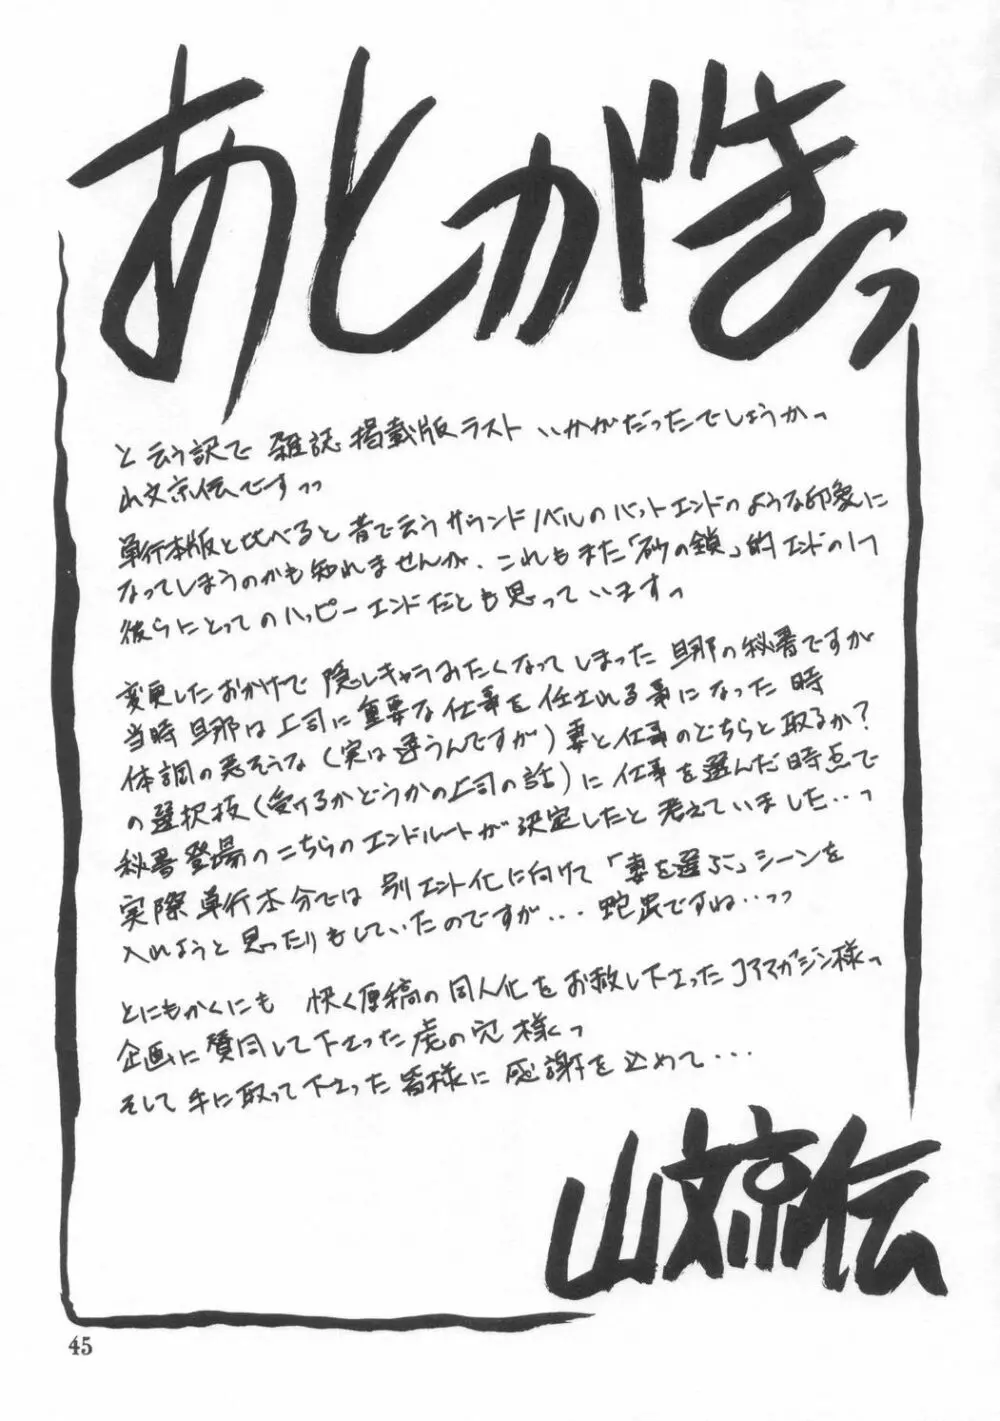 あとがきっ
と云う訳で 雑誌掲載版ラスト いかがだったでしょうかっ
山文京伝ですっっ
単行本版と比べると 昔で云うサウンドノベルのバットエンドのような印象に
なってしまうのかも知れませんが、これもまた「砂の鎖」的エンドの1つ
彼らにとってのハッピーエンドだとも思っていますっ
変更したおかげで 隠しキャラみたくなってしまった 旦那の秘書ですが
当時 旦那は上司に重要な仕事を任される事になった時
体調の悪そうな(実は違うんですが)妻と仕事のどちらと取るか?
の選択枝(受けるかどうかの上司の話)に 仕事を選んだ時点で
秘書登場のこちらのエンドルートが決定したと 考えていました…っ
実際 単行本分では 別エンド化に向けて「妻を選ぶ」シーンを
入れようと思ったりもしていたのですが… 蛇足ですね…っっ
とにもかくにも 快く原稿の同人化をお赦し下さったコアマガジン様っ
企画に賛同して下さった虎の穴様くっ
そして手に取って下さった皆様に 感謝を込めて…
山文京伝
45